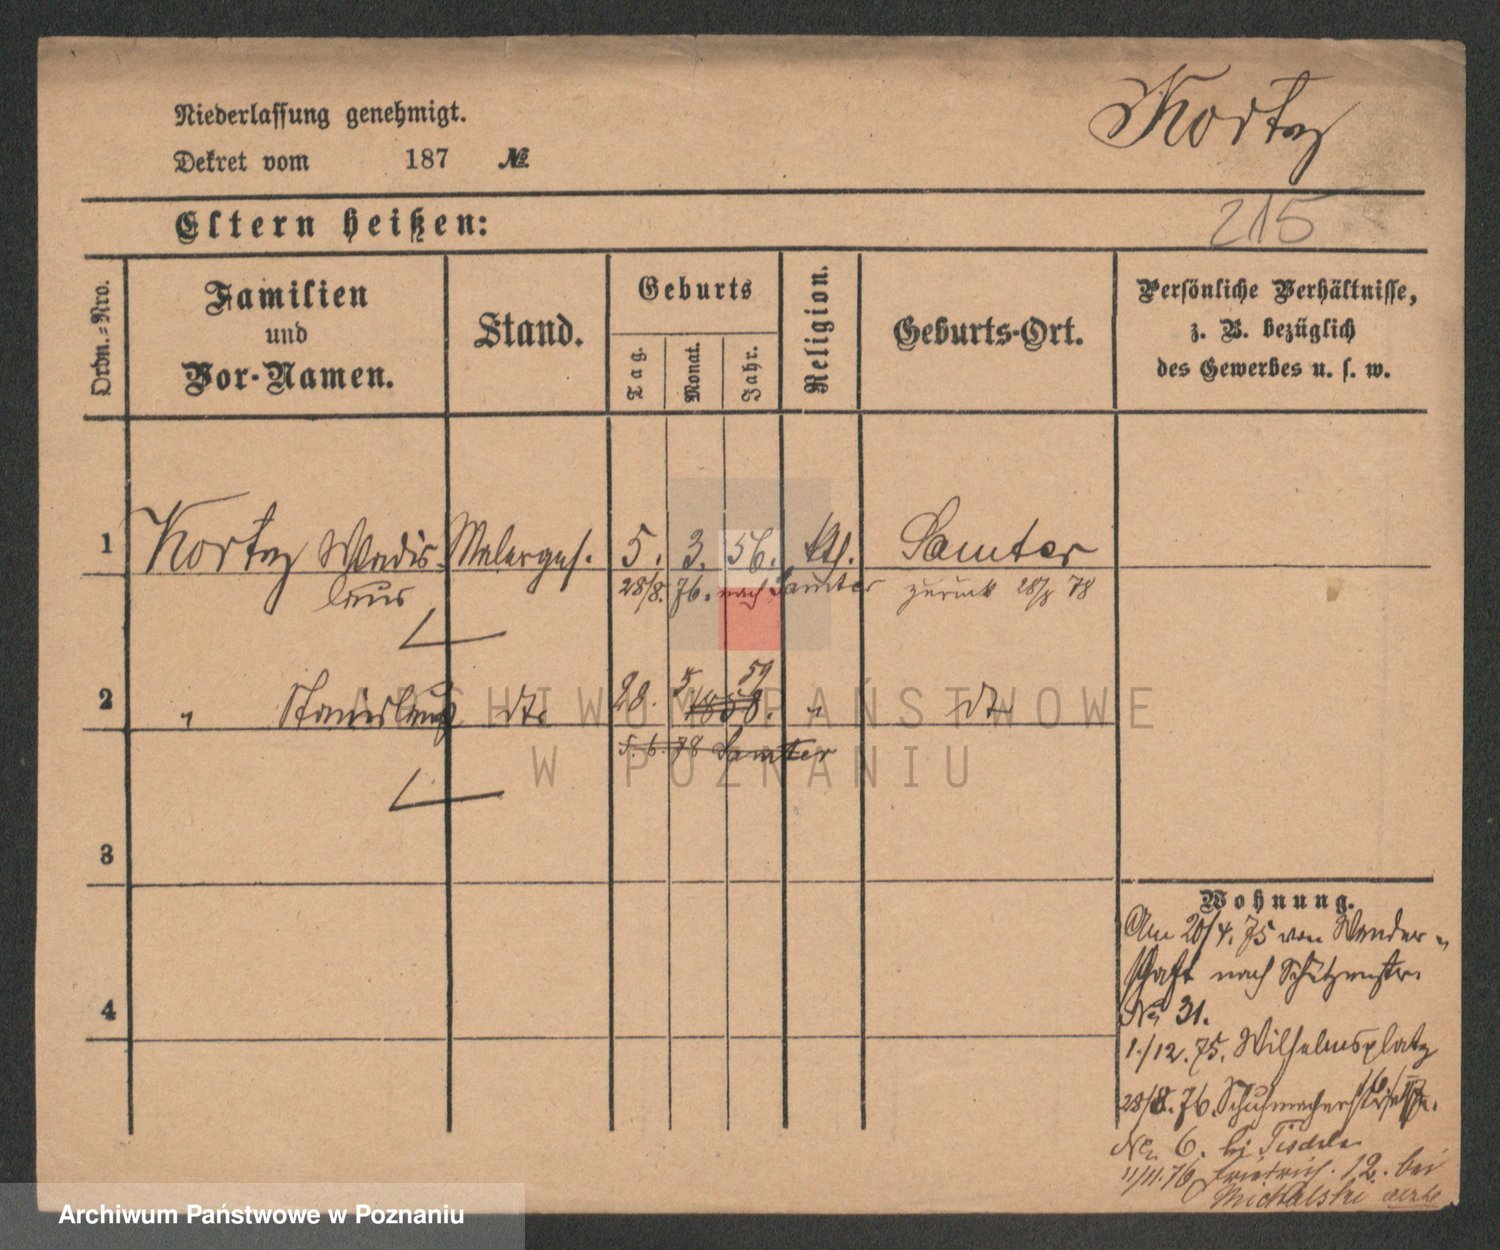 Niederlassung genehmigt.
Kortz
Dekret vom 187 №
Eltern heißen:
215
Ordn.=Nro.
Familien
und
Vor-Namen.
Stand.
Geburts
Tag.
Monat.
Jahr.
Religion.
Geburts-Ort.
Persönliche Verhältnisse,
z. B. bezüglich
des Gewerbes u. s. w.
1 Kortz Wladis- Malergeh. 5. 3. 56. kth. Samter
laus 28/8. 76. nach Samter zurück 28/8 78
2 " Stanislaus dto 28. 5 59 1858. " dto
5. 6. 78 Samter
3
4
Wohnung.
Am 20/4. 75 von Wander-
schaft nach Schützenstr.
No 31.
1./12. 75. Wilhelmsplatz
16.
28/8. 76. Schuhmacherstraße
No 6. bei Tischler
11/11. 76 Friedrich. 12. bei
Michalski
ARCHIWUM PAŃSTWOWE
W POZNANIU
Archiwum Państwowe w Poznaniu